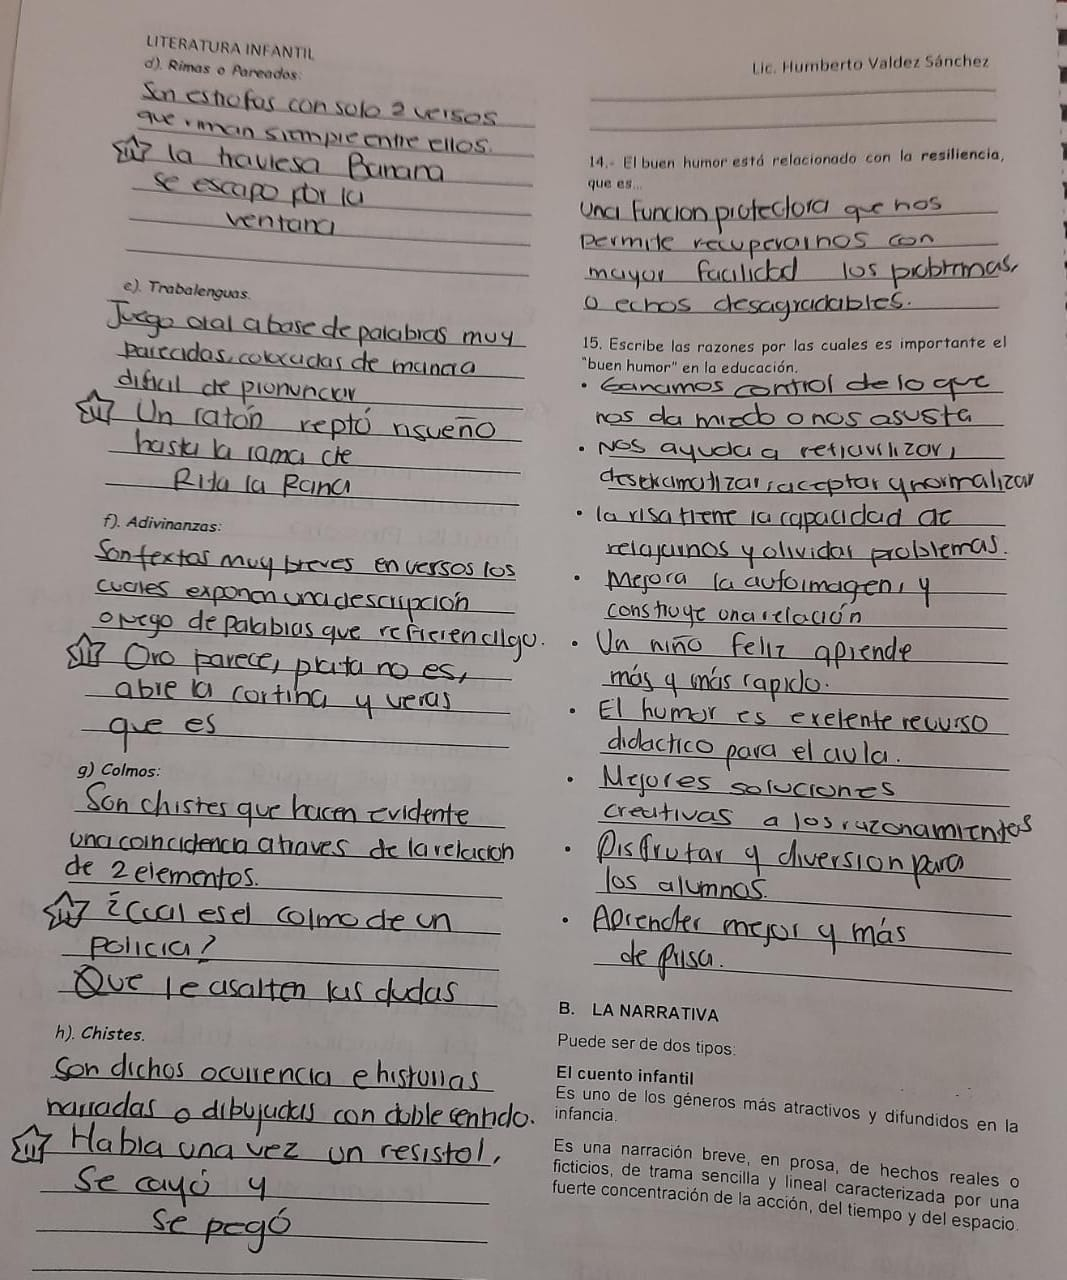 LITERATURA INFANTIL
d). Rimas o Pareados:
Son estrofas con solo 2 versos
que riman siempre entre ellos.
la traviesa Banana
se escapo por la
ventana
e). Trabalenguas.
Juego oral a base de palabras muy
parecidas, colocadas de manera
dificil de pronunciar
Un ratón reptó risueño
hasta la rama de
Rita la Rana
f). Adivinanzas:
Son textos muy breves en versos los
cuales exponen una descripción
o juego de palabras que refieren algo.
Oro parece, plata no es,
abre la cortina y veras
que es
g) Colmos:
Son chistes que hacen evidente
una coincidencia atraves de la relación
de 2 elementos.
¿Cual es el colmo de un
policia?
Que le asalten las dudas
h). Chistes.
Son dichos ocurrencia e historias
narradas o dibujadas con doble sentido.
Habla una vez un resistol,
se cayó y
se pegó
Lic. Humberto Valdez Sánchez
14.- El buen humor está relacionado con la resiliencia,
que es...
Una Funcion protectora que nos
permite recuperarnos con
mayor facilidad los problemas,
o echos desagradables.
15. Escribe las razones por las cuales es importante el
"buen humor" en la educación.
• Ganamos control de lo que
nos da miedo o nos asusta
• Nos ayuda a
aceptar y normalizar
• la risa tiene la capacidad de
relajarnos y olvidar problemas.
• Mejora la autoimagen, y
construye una relación
• Un niño feliz aprende
más y más rapido.
• El humor es exelente recurso
didactico para el aula.
• Mejores soluciones
creativas a los razonamientos
• Disfrutar y diversion para
los alumnos.
• Aprender mejor y más
de prisa.
B. LA NARRATIVA
Puede ser de dos tipos:
El cuento infantil
Es uno de los géneros más atractivos y difundidos en la
infancia.
Es una narración breve, en prosa, de hechos reales o
ficticios, de trama sencilla y lineal caracterizada por una
fuerte concentración de la acción, del tiempo y del espacio.